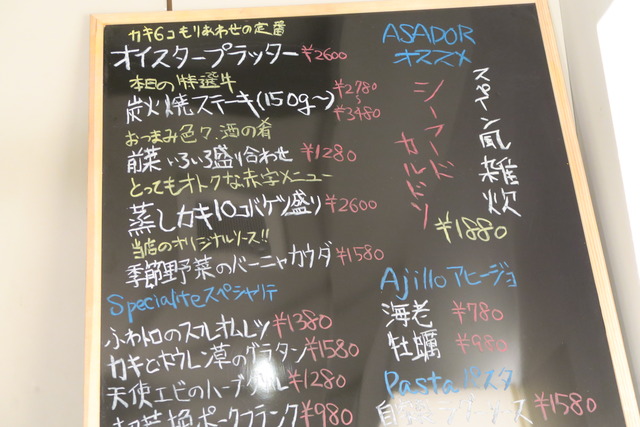 カキ6コもりあわせの定番
オイスタープラッター ¥2600
本日の特選牛
炭火焼ステーキ(150g〜) ¥2780〜¥3480
おつまみ色々.酒の肴
前菜いろいろ盛り合わせ ¥1280
とってもオトクな赤字メニュー
蒸しカキ10コバケツ盛り ¥2600
当店のオリジナルソース!!
季節野菜のバーニャカウダ ¥1580
Specialiteスペシャリテ
ふわトロのスフレオムレツ ¥1380
カキとホウレン草のグラタン ¥1580
天使エビのハーブグリル ¥1280
ポークフランク ¥980
ASADOR
オススメ
スペイン風雑炊
シーフードカルドソ
¥1880
Ajilloアヒージョ
海老 ¥780
牡蠣 ¥980
Pastaパスタ
¥1580